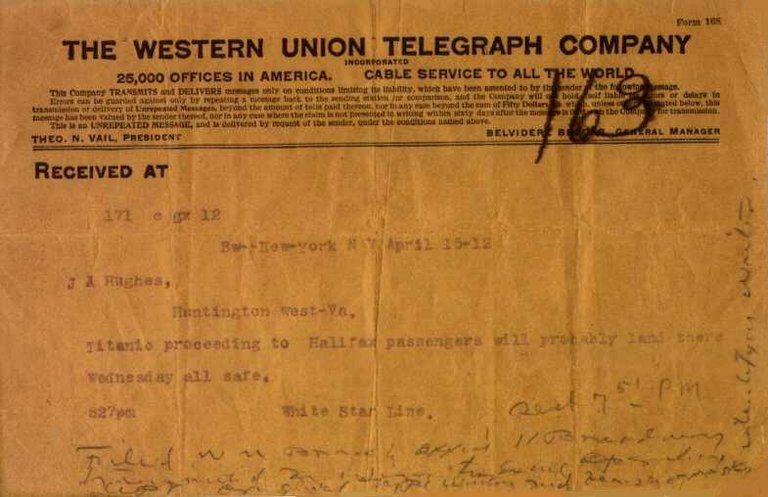 Form 168
THE WESTERN UNION TELEGRAPH COMPANY
INCORPORATED
25,000 OFFICES IN AMERICA. CABLE SERVICE TO ALL THE WORLD
This Company TRANSMITS and DELIVERS messages only on conditions limiting its liability, which have been assented to by the sender of the following message.
Errors can be guarded against only by repeating a message back to the sending station for comparison, and the Company will not hold itself liable for errors or delays in
transmission or delivery of Unrepeated Messages, beyond the amount of tolls paid thereon, nor in any case beyond the sum of Fifty Dollars, at which, unless otherwise stated below, this
message has been valued by the sender thereof, nor in any case where the claim is not presented in writing within sixty days after the message is filed with the Company for transmission.
This is an UNREPEATED MESSAGE, and is delivered by request of the sender, under the conditions named above.
THEO. N. VAIL, PRESIDENT BELVIDERE GENERAL MANAGER
163
RECEIVED AT
171 c gx 12
Bw--New-york N Y April 15-12
J A Hughes,
Huntington West-Va.
Titanic proceeding to Halifax passengers will probably land there
Wednesday all safe.
827pm White Star Line.
7 51 PM
Filed Broadway